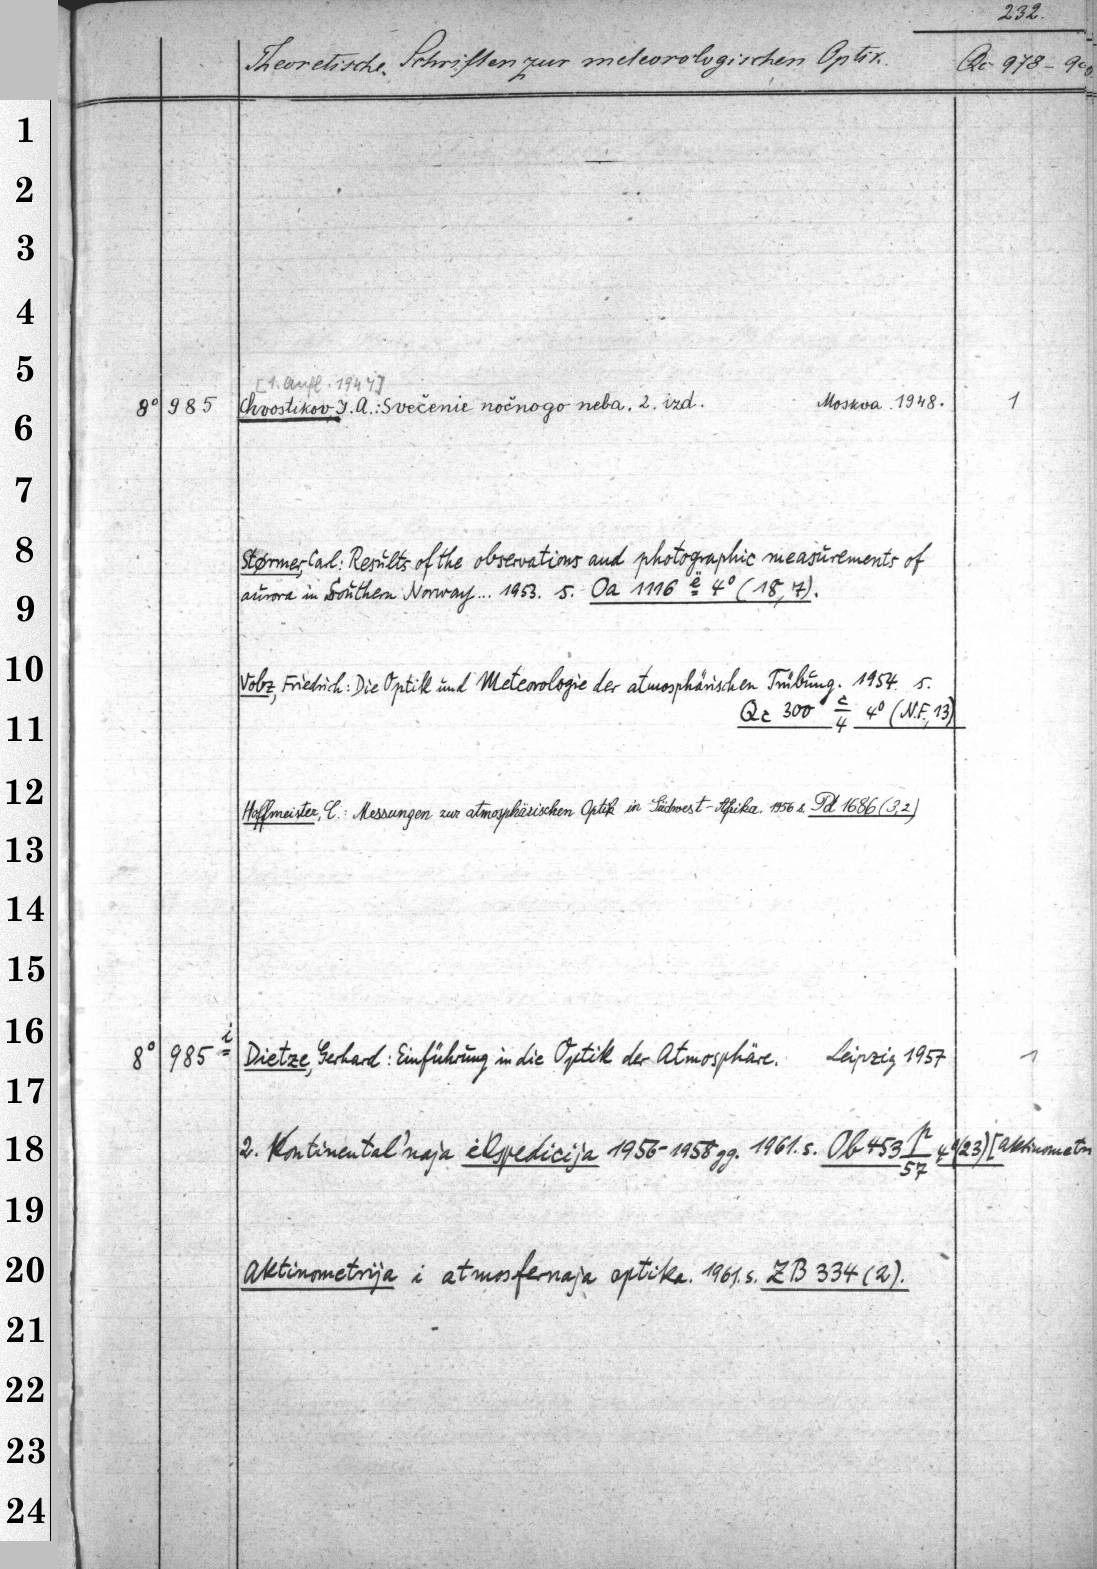 232.
Theoretische Schriften zur meteorologischen Optik. Qc 978-990.
1
2
3
4
5
[1. Aufl. 1947]
8° 985 Chvostikov, I. A.: Svečenie nočnogo neba. 2. izd. Moskva. 1948. 1
6
7
8
Størmer, Carl: Results of the observations and photographic measurements of
9
aurora in Southern Norway... 1953. s. Oa 1116 ë 4° (18,7).
10
Volz, Friedrich: Die Optik und Meteorologie der atmosphärischen Trübung. 1954. s.
11
Qc 300 c/4 4° (N.F., 13)
12
Hoffmeister, C.: Messungen zur atmosphärischen Optik in Südwest-Afrika. 1956 s. Pd 1686 (3,2)
13
14
15
16
8° 985 i Dietze, Gerhard: Einführung in die Optik der Atmosphäre. Leipzig 1957 1
17
18
2. Kontinental'naja ėkspedicija 1956-1958 gg. 1961. s. Ob 453 p/57 4° (23) [Aktinometri
19
20
Aktinometrija i atmosfernaja optika. 1961. s. ZB 334 (2).
21
22
23
24